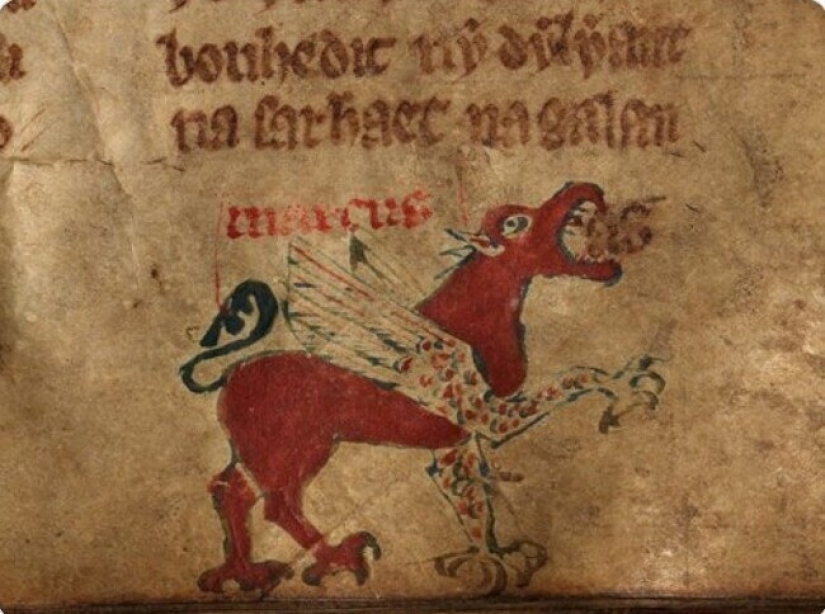 bonhedic nẏ dẏlẏant
na sarhaet na galan
marcus
as